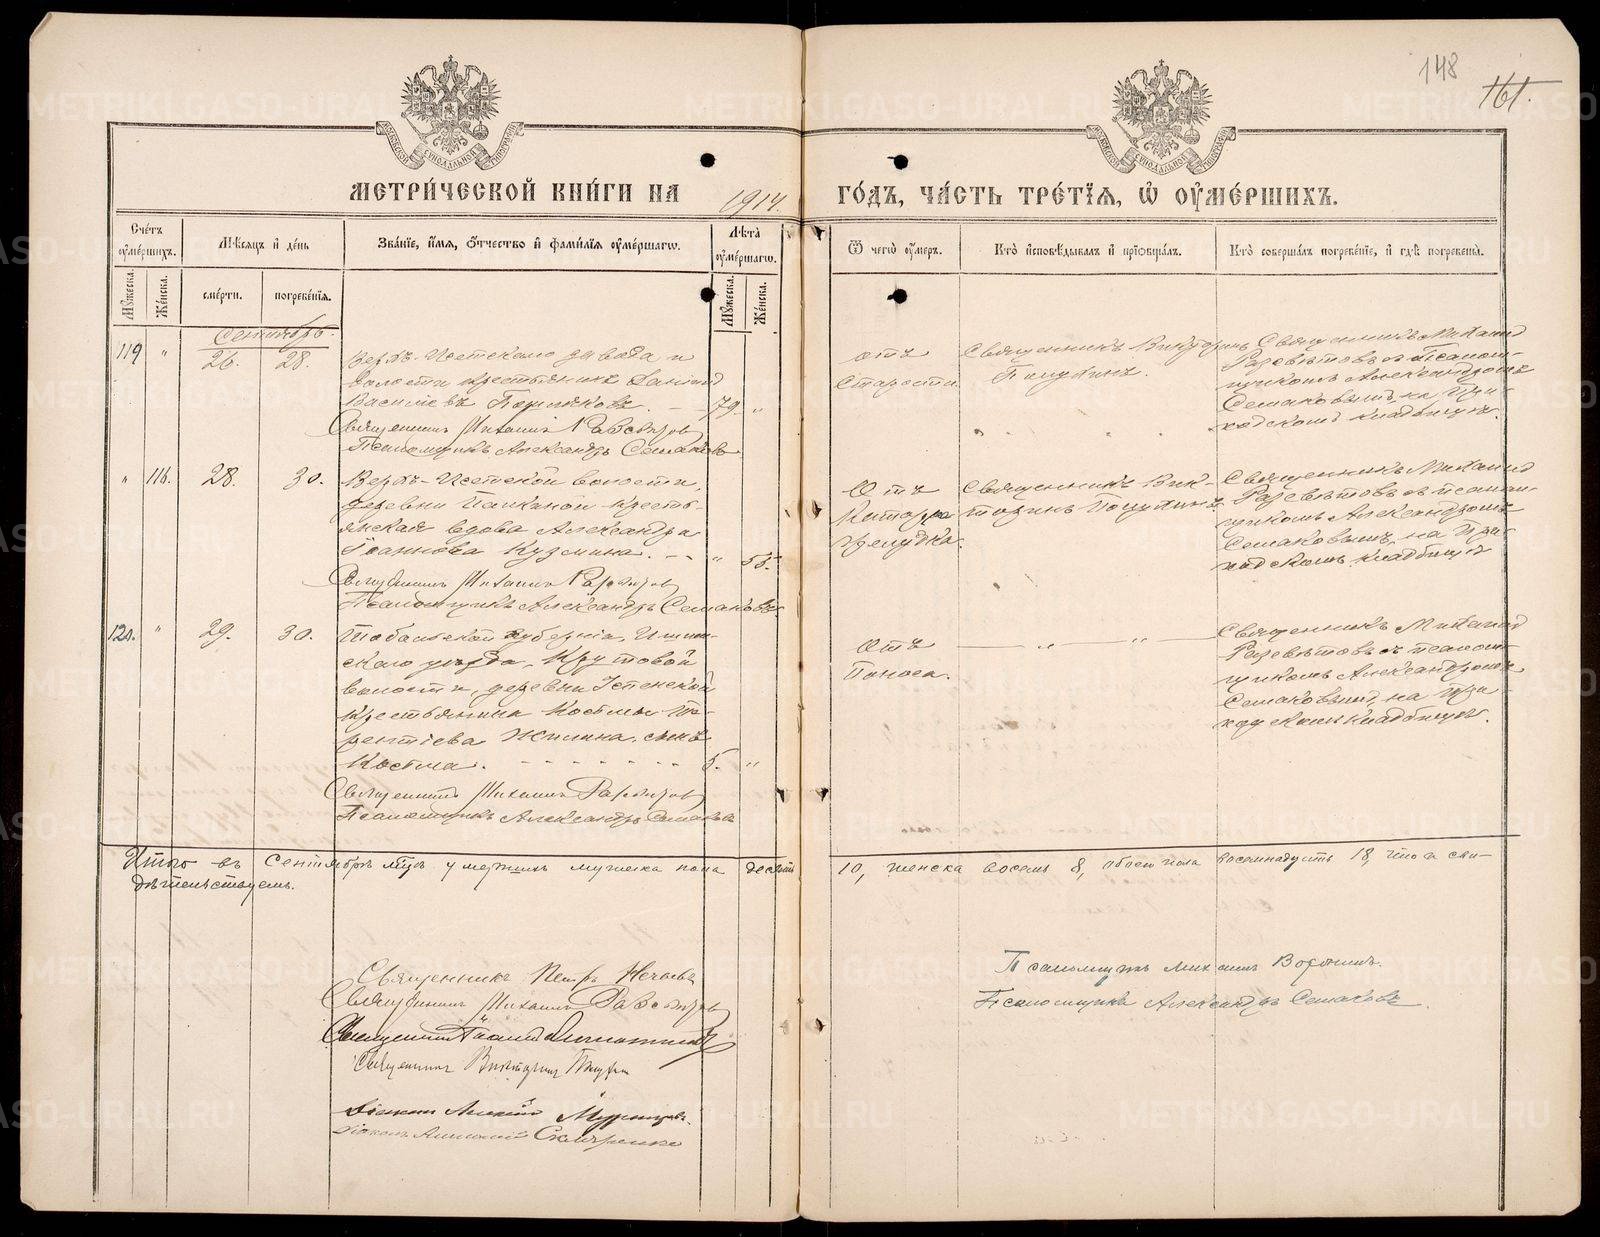 148
161.
МЕТРИ́ЧЕСКОЙ КНИ́ГИ НА 1914. ГО́ДЪ, ЧА́СТЬ ТРЕ́ТІѦ, Ѡ҆ ОУ҆МЕ́РШИХЪ.
Сче́тъ оу҆ме́ршихъ.
Мꙋ́жеска.
Же́нска.
Мѣ́сѧцъ и҆ де́нь
сме́рти.
погребе́нїѧ.
Зва́нїе, и҆́мѧ, ѻ҆́тчество и҆ фами́лїѧ оу҆ме́ршагѡ.
Лѣ́та оу҆ме́ршагѡ.
Мꙋ́жеска.
Же́нска.
Ѿ чегѡ̀ оу҆́меръ.
Кто̀ и҆сповѣ́дывалъ и҆ прїѡбща́лъ.
Кто̀ соверша́лъ погребе́нїе, и҆ гдѣ̀ погребены̀.
Сентябрь.
119 " 26. 28.
Верхъ-Исетскаго завода и
волости крестьянинъ
Васильевъ — 79 "
Священникъ Михаилъ
Псаломщикъ Александръ Семаковъ
отъ
Старости
Священникъ Викторинъ
Священникъ Михаилъ
съ Псалом-
щикомъ Александромъ
Семаковымъ, на При-
ходскомъ кладбищѣ.
" 116. 28. 30.
Верхъ-Исетской волости,
деревни крестьянская вдова Александра
Іоаннова Кузмина. — " 55.
Священникъ Михаилъ
Псаломщикъ Александръ Семаковъ
Отъ
Катарра
желудка.
Священникъ Вик-
торинъ
Священникъ Михаилъ
съ псалом-
щикомъ Александромъ
Семаковымъ, на При-
ходскомъ кладбищѣ
120. " 29. 30.
Тобольской губерніи, Ишим-
скаго уѣзда, Крутовой
волости, деревни Успенской
крестьянина Косьмы Те-
рентіева Жилина, сынъ
Косьма. - - - - - - - 5. "
Священникъ Михаилъ
Псаломщикъ Александръ Семаковъ
Отъ
Поноса.
— " — " —
Священникъ Михаилъ
съ псалом-
щикомъ Александромъ
Семаковымъ, на При-
ходскомъ кладбищѣ.
Итого въ Сентябрѣ мѣсяцѣ умершихъ мужеска пола десять 10, женска восемь 8, обоего пола восемнадцать 18, что и сви-
дѣтельствуемъ.
Священникъ Петръ Нечаевъ
Священникъ Михаилъ
Священникъ
Священникъ Викторинъ
Діаконъ Алексій
Діаконъ
Псаломщикъ Михаилъ
Псаломщикъ Александръ Семаковъ.
METRIKI.GASO-URAL.RU